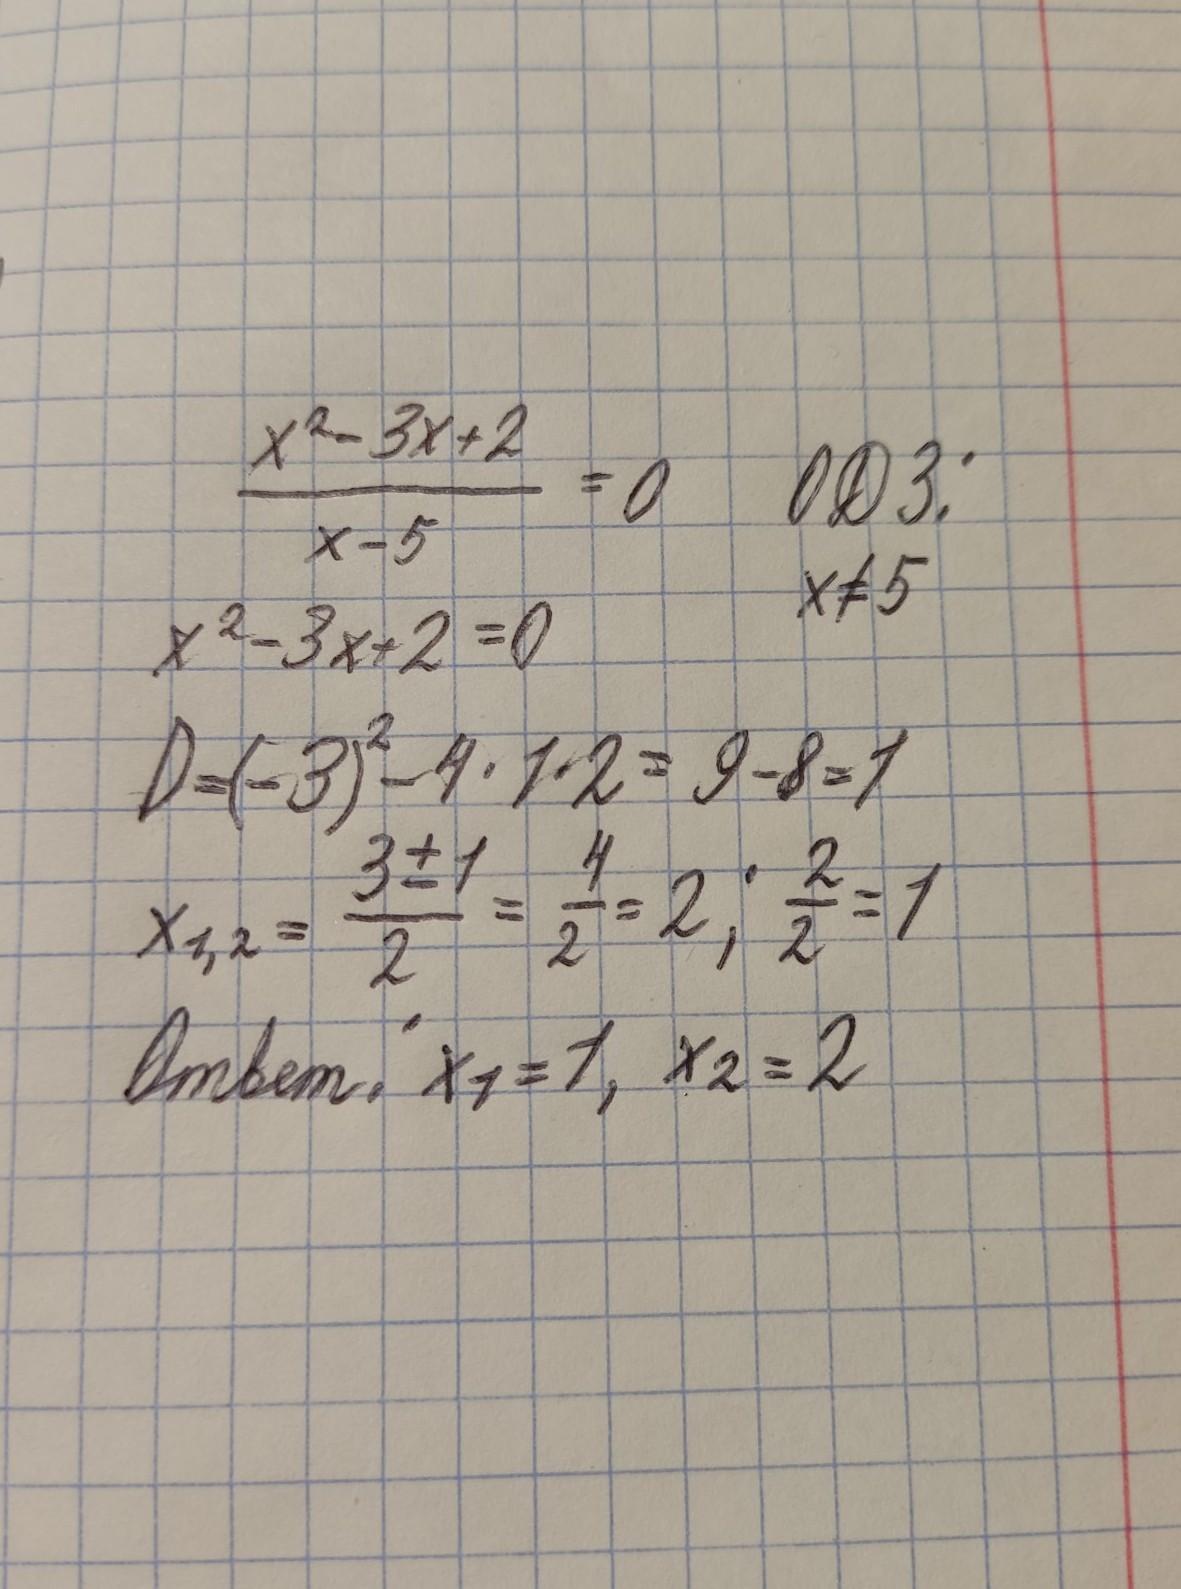 (x² - 3x + 2) / (x - 5) = 0
ОДЗ:
x ≠ 5
x² - 3x + 2 = 0
D = (-3)² - 4 · 1 · 2 = 9 - 8 = 1
x₁,₂ = (3 ± 1) / 2 = 4/2 = 2 ; 2/2 = 1
Ответ: x₁ = 1, x₂ = 2